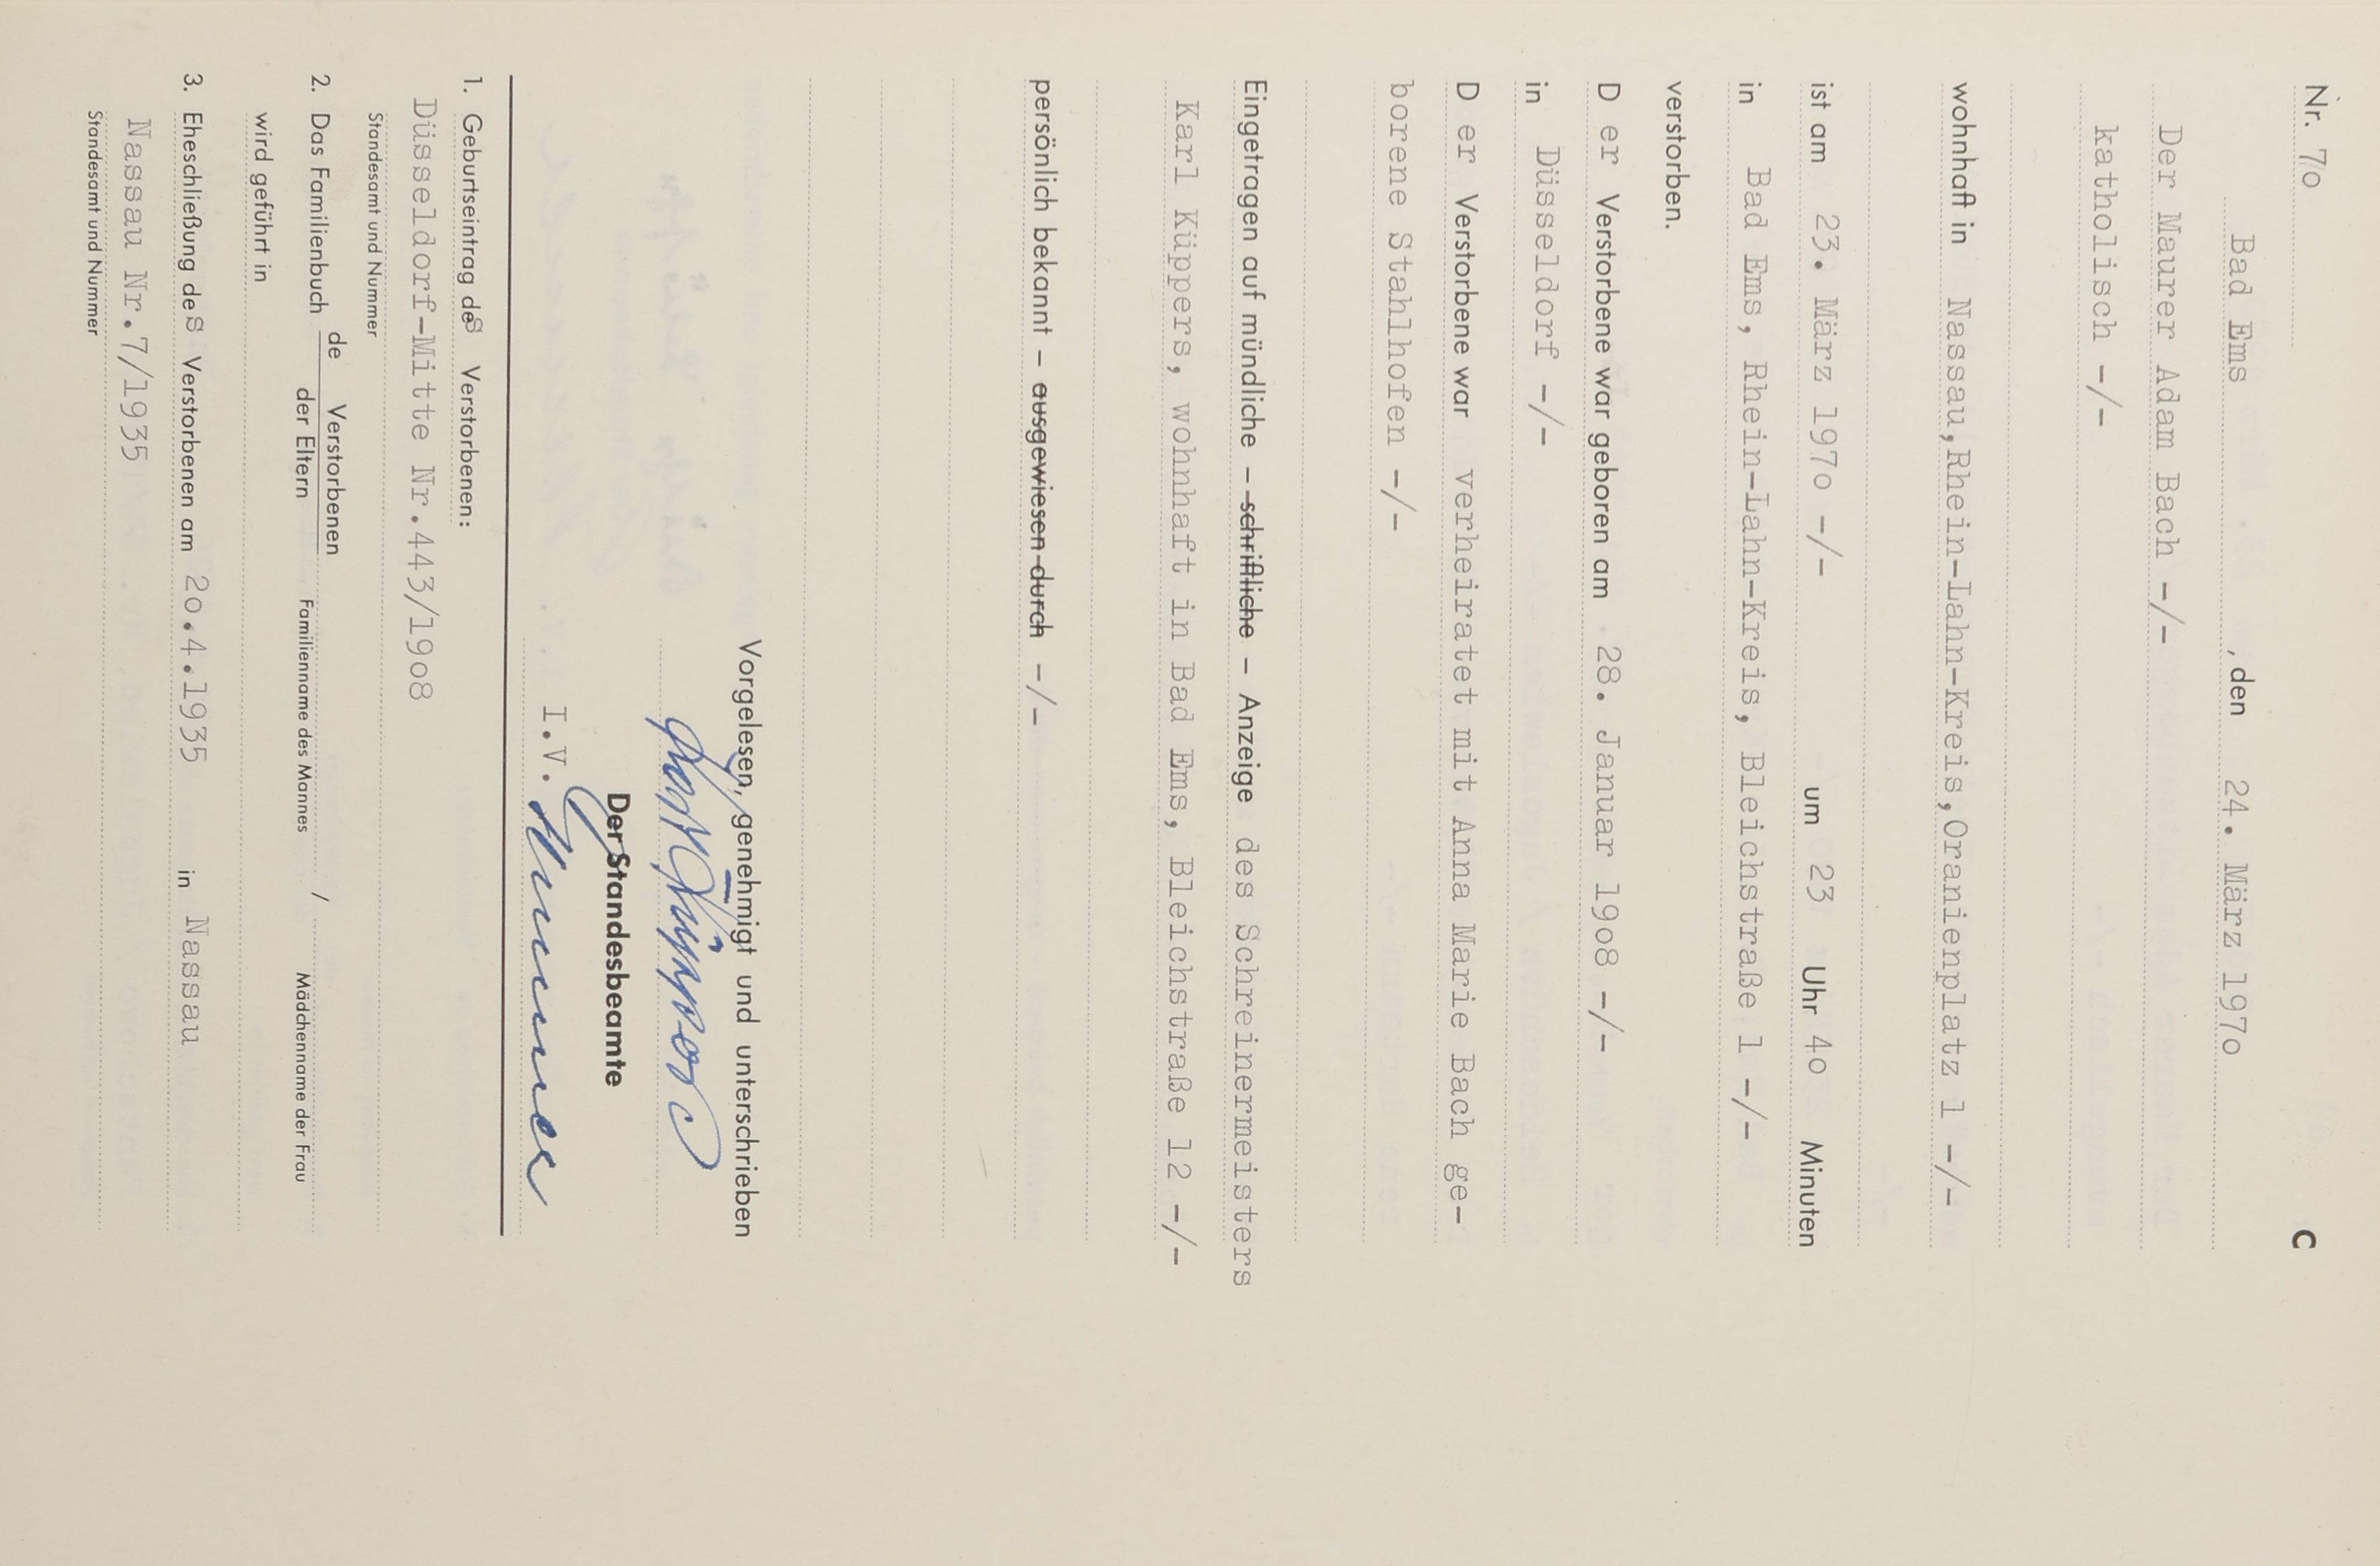 Nr. 7o
C
Bad Ems , den 24. März 197o
Der Maurer Adam Bach -/-
katholisch -/-
wohnhaft in Nassau,Rhein-Lahn-Kreis,Oranienplatz 1 -/-
ist am 23. März 197o -/- um 23 Uhr 4o Minuten
in Bad Ems, Rhein-Lahn-Kreis, Bleichstraße 1 -/-
verstorben.
D er Verstorbene war geboren am 28. Januar 19o8 -/-
in Düsseldorf -/-
D er Verstorbene war verheiratet mit Anna Marie Bach ge-
borene Stahlhofen -/-
Eingetragen auf mündliche - schriftliche - Anzeige des Schreinermeisters
Karl Küppers, wohnhaft in Bad Ems, Bleichstraße 12 -/-
persönlich bekannt - ausgewiesen durch -/-
Vorgelesen, genehmigt und unterschrieben
Karl Küppers
Der Standesbeamte
I.V.
1. Geburtseintrag des Verstorbenen:
Düsseldorf-Mitte Nr.443/19o8
Standesamt und Nummer
2. Das Familienbuch de Verstorbenen
der Eltern Familienname des Mannes / Mädchenname der Frau
wird geführt in
3. Eheschließung des Verstorbenen am 2o.4.1935 in Nassau
Nassau Nr.7/1935
Standesamt und Nummer